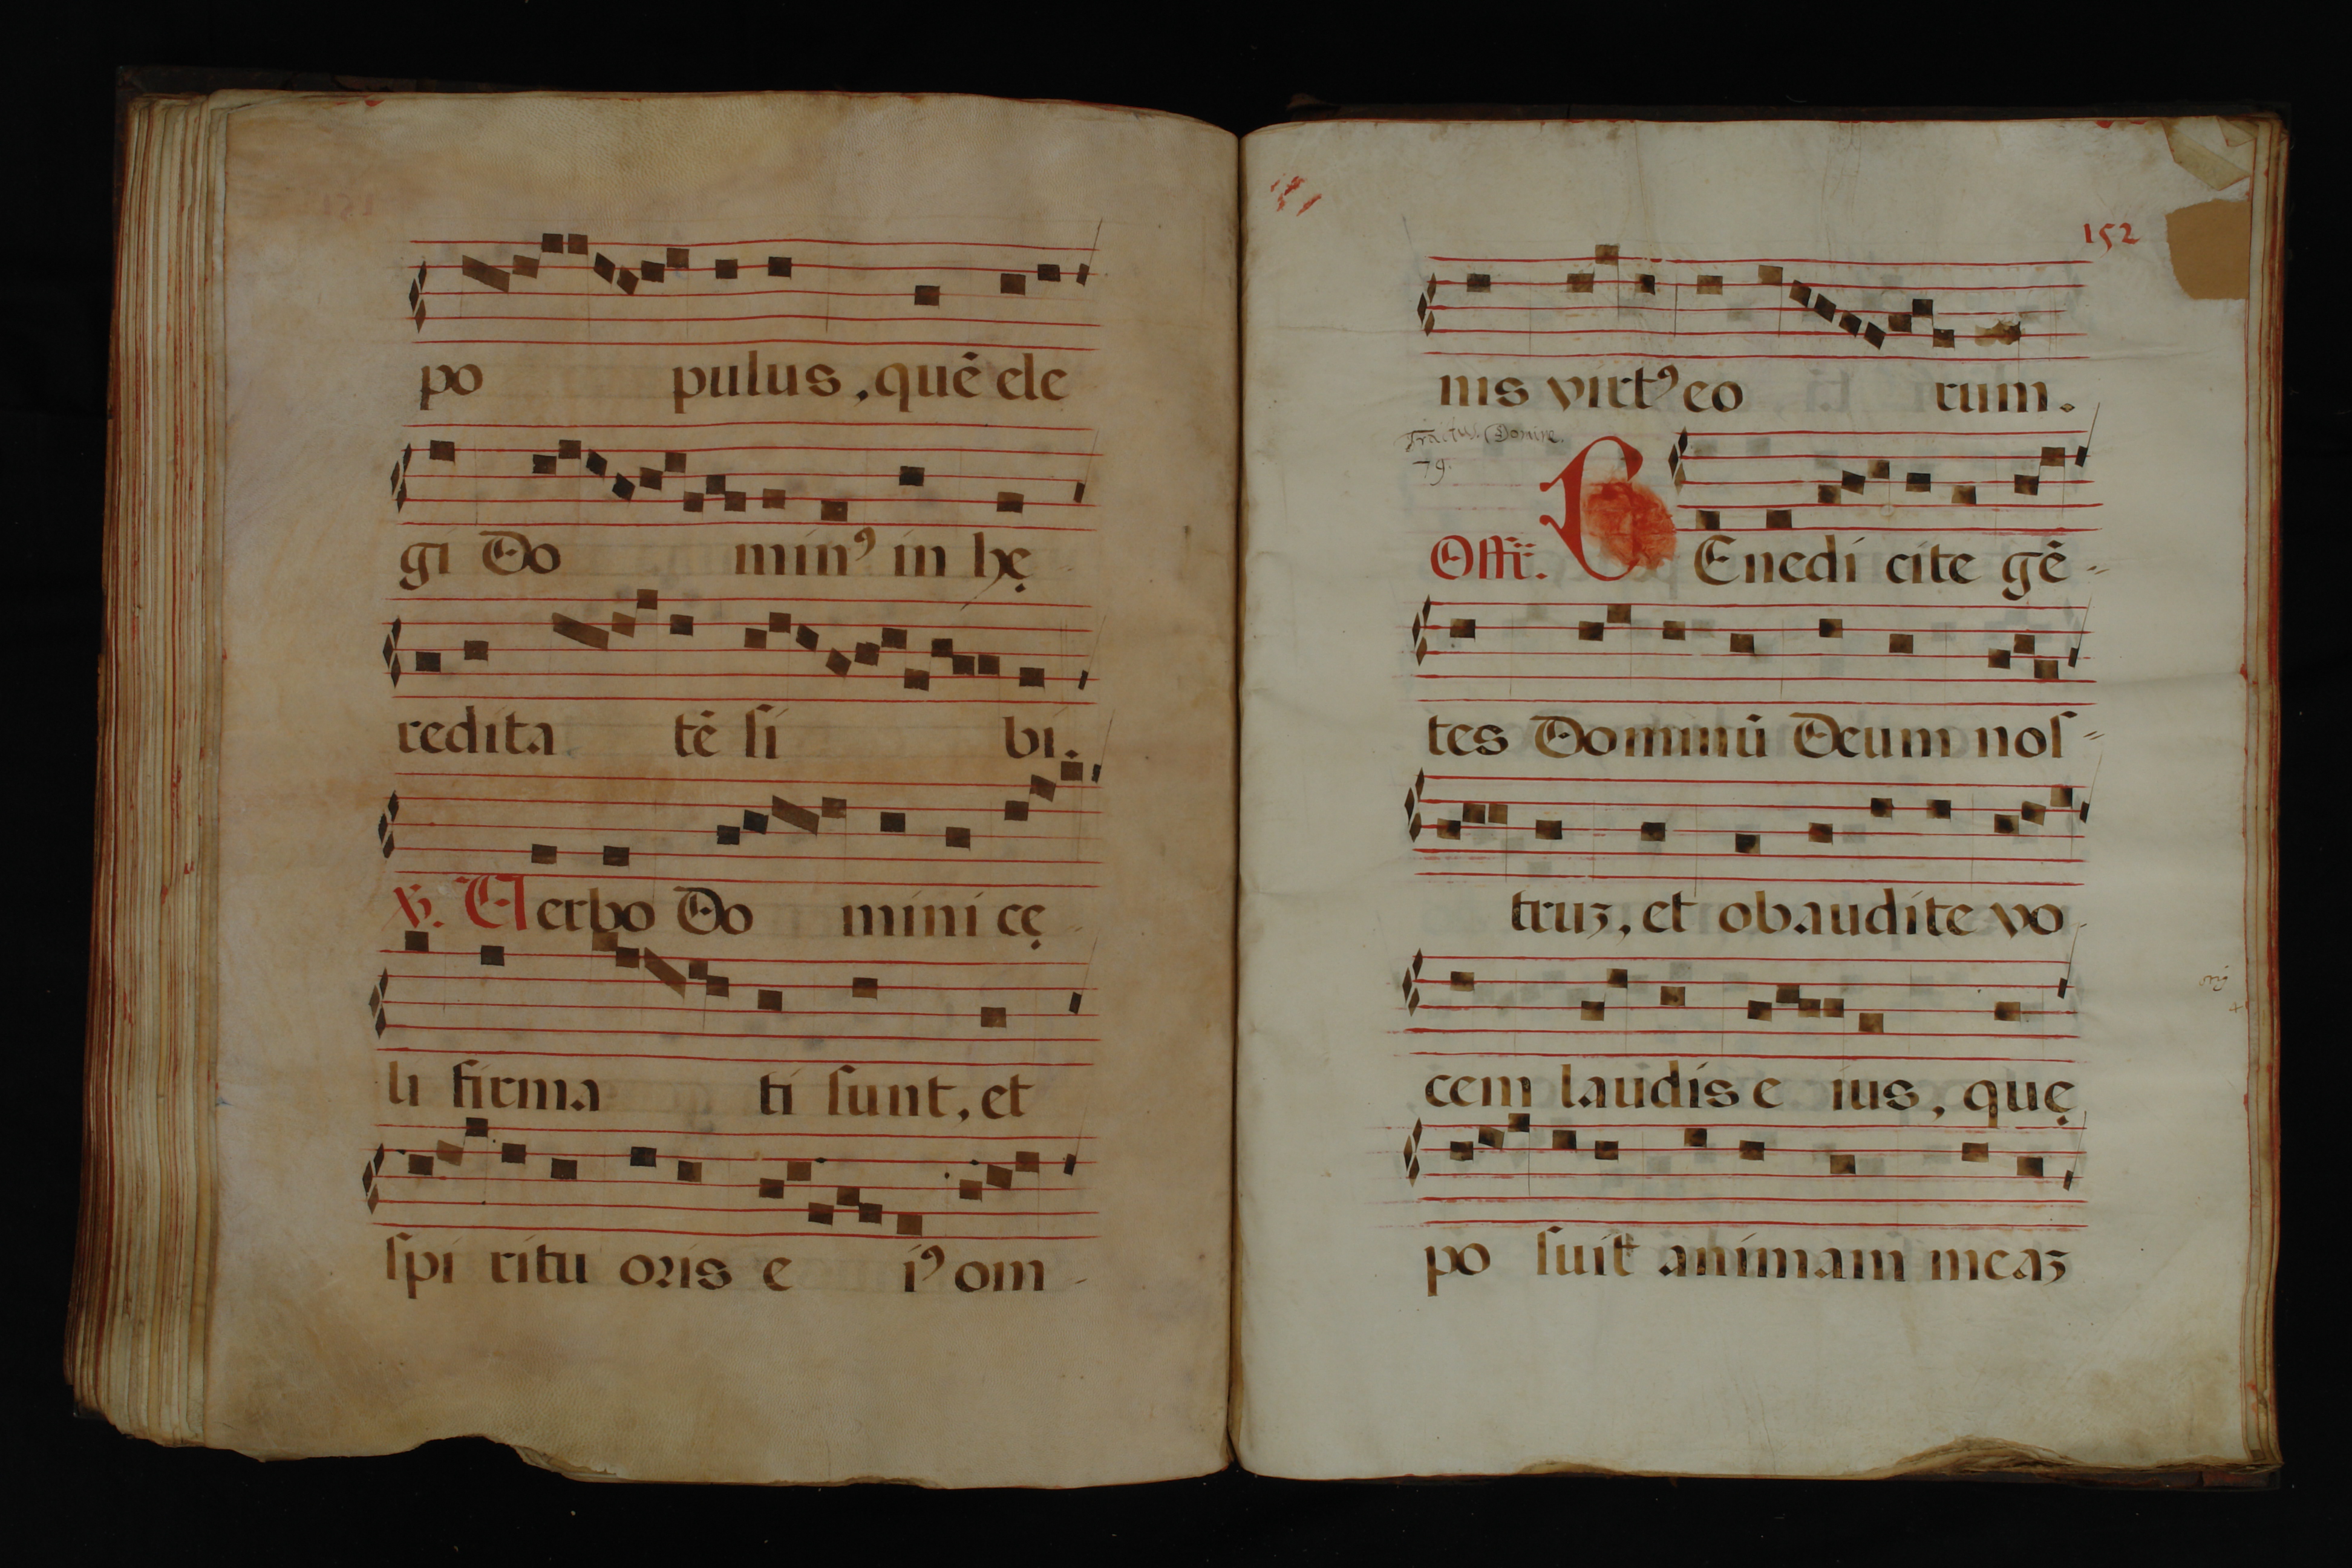 po pulus, quē ele
gi Do minꝰ in hę
redita tē ſi bi.
℣. Verbo Do mini cę
li firma ti ſunt, et
ſpi ritu oris e iꝰ om
152
nis virtꝰ eo rum.
Tractus. Domine.
79.
Offr̄. BEnedi cite gē-
tes Dominū Deum noſ-
truꝫ, et obaudite vo
cem laudis e ius, quę
po ſuit animam meaꝫ